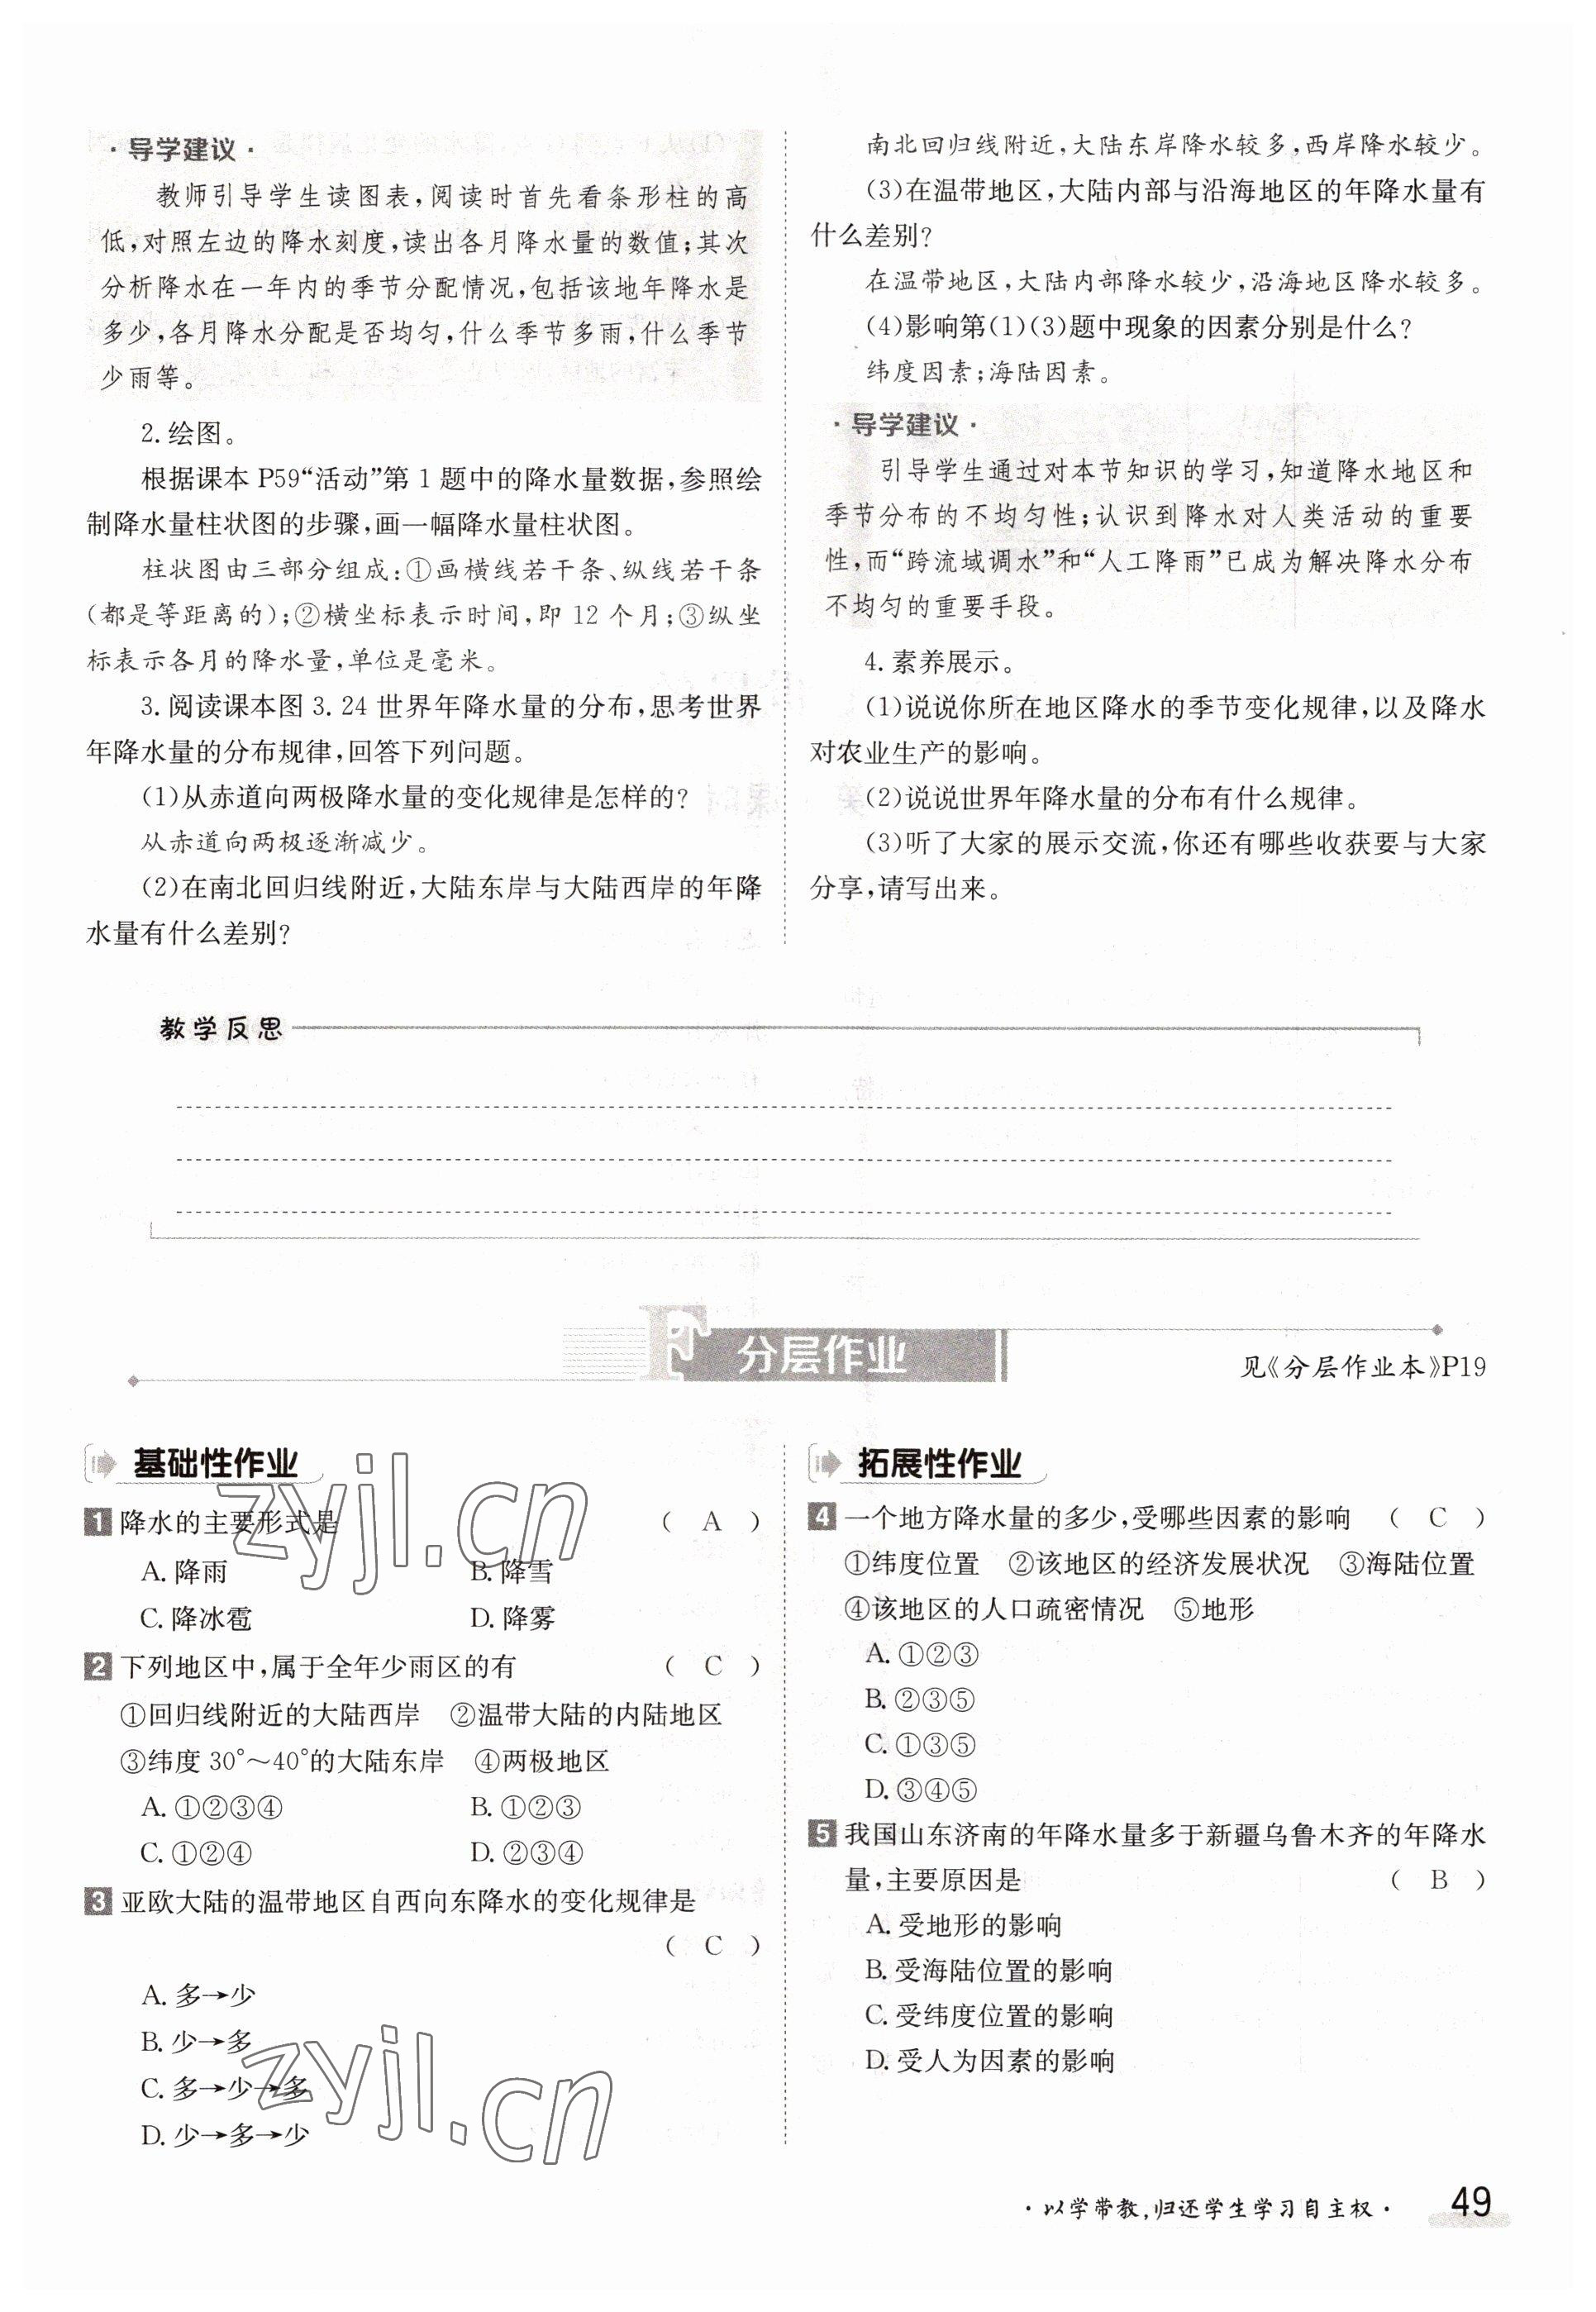 ·导学建议·
教师引导学生读图表,阅读时首先看条形柱的高
低,对照左边的降水刻度,读出各月降水量的数值;其次
分析降水在一年内的季节分配情况,包括该地年降水是
多少,各月降水分配是否均匀,什么季节多雨,什么季节
少雨等。
2.绘图。
根据课本 P59“活动”第 1 题中的降水量数据,参照绘
制降水量柱状图的步骤,画一幅降水量柱状图。
柱状图由三部分组成:①画横线若干条、纵线若干条
(都是等距离的);②横坐标表示时间,即 12 个月;③纵坐
标表示各月的降水量,单位是毫米。
3.阅读课本图 3.24 世界年降水量的分布,思考世界
年降水量的分布规律,回答下列问题。
(1)从赤道向两极降水量的变化规律是怎样的?
从赤道向两极逐渐减少。
(2)在南北回归线附近,大陆东岸与大陆西岸的年降
水量有什么差别?
南北回归线附近,大陆东岸降水较多,西岸降水较少。
(3)在温带地区,大陆内部与沿海地区的年降水量有
什么差别?
在温带地区,大陆内部降水较少,沿海地区降水较多。
(4)影响第(1)(3)题中现象的因素分别是什么?
纬度因素;海陆因素。
·导学建议·
引导学生通过对本节知识的学习,知道降水地区和
季节分布的不均匀性;认识到降水对人类活动的重要
性,而“跨流域调水”和“人工降雨”已成为解决降水分布
不均匀的重要手段。
4.素养展示。
(1)说说你所在地区降水的季节变化规律,以及降水
对农业生产的影响。
(2)说说世界年降水量的分布有什么规律。
(3)听了大家的展示交流,你还有哪些收获要与大家
分享,请写出来。
教学反思
分层作业
见《分层作业本》P19
基础性作业
1 降水的主要形式是 ( A )
A.降雨 B.降雪
C.降冰雹 D.降雾
2 下列地区中,属于全年少雨区的有 ( C )
①回归线附近的大陆西岸 ②温带大陆的内陆地区
③纬度 30°～40°的大陆东岸 ④两极地区
A.①②③④ B.①②③
C.①②④ D.②③④
3 亚欧大陆的温带地区自西向东降水的变化规律是
( C )
A.多→少
B.少→多
C.多→少→多
D.少→多→少
拓展性作业
4 一个地方降水量的多少,受哪些因素的影响 ( C )
①纬度位置 ②该地区的经济发展状况 ③海陆位置
④该地区的人口疏密情况 ⑤地形
A.①②③
B.②③⑤
C.①③⑤
D.③④⑤
5 我国山东济南的年降水量多于新疆乌鲁木齐的年降水
量,主要原因是 ( B )
A.受地形的影响
B.受海陆位置的影响
C.受纬度位置的影响
D.受人为因素的影响
zyjl.cn
zyjl.cn
·以学带教,归还学生学习自主权·
49